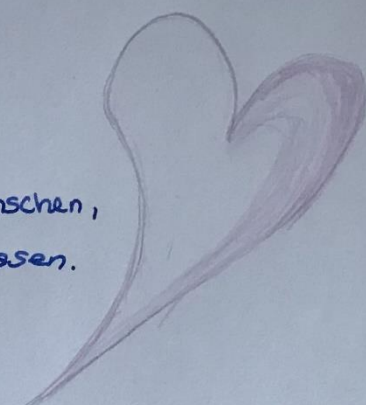 nschen,
sen.